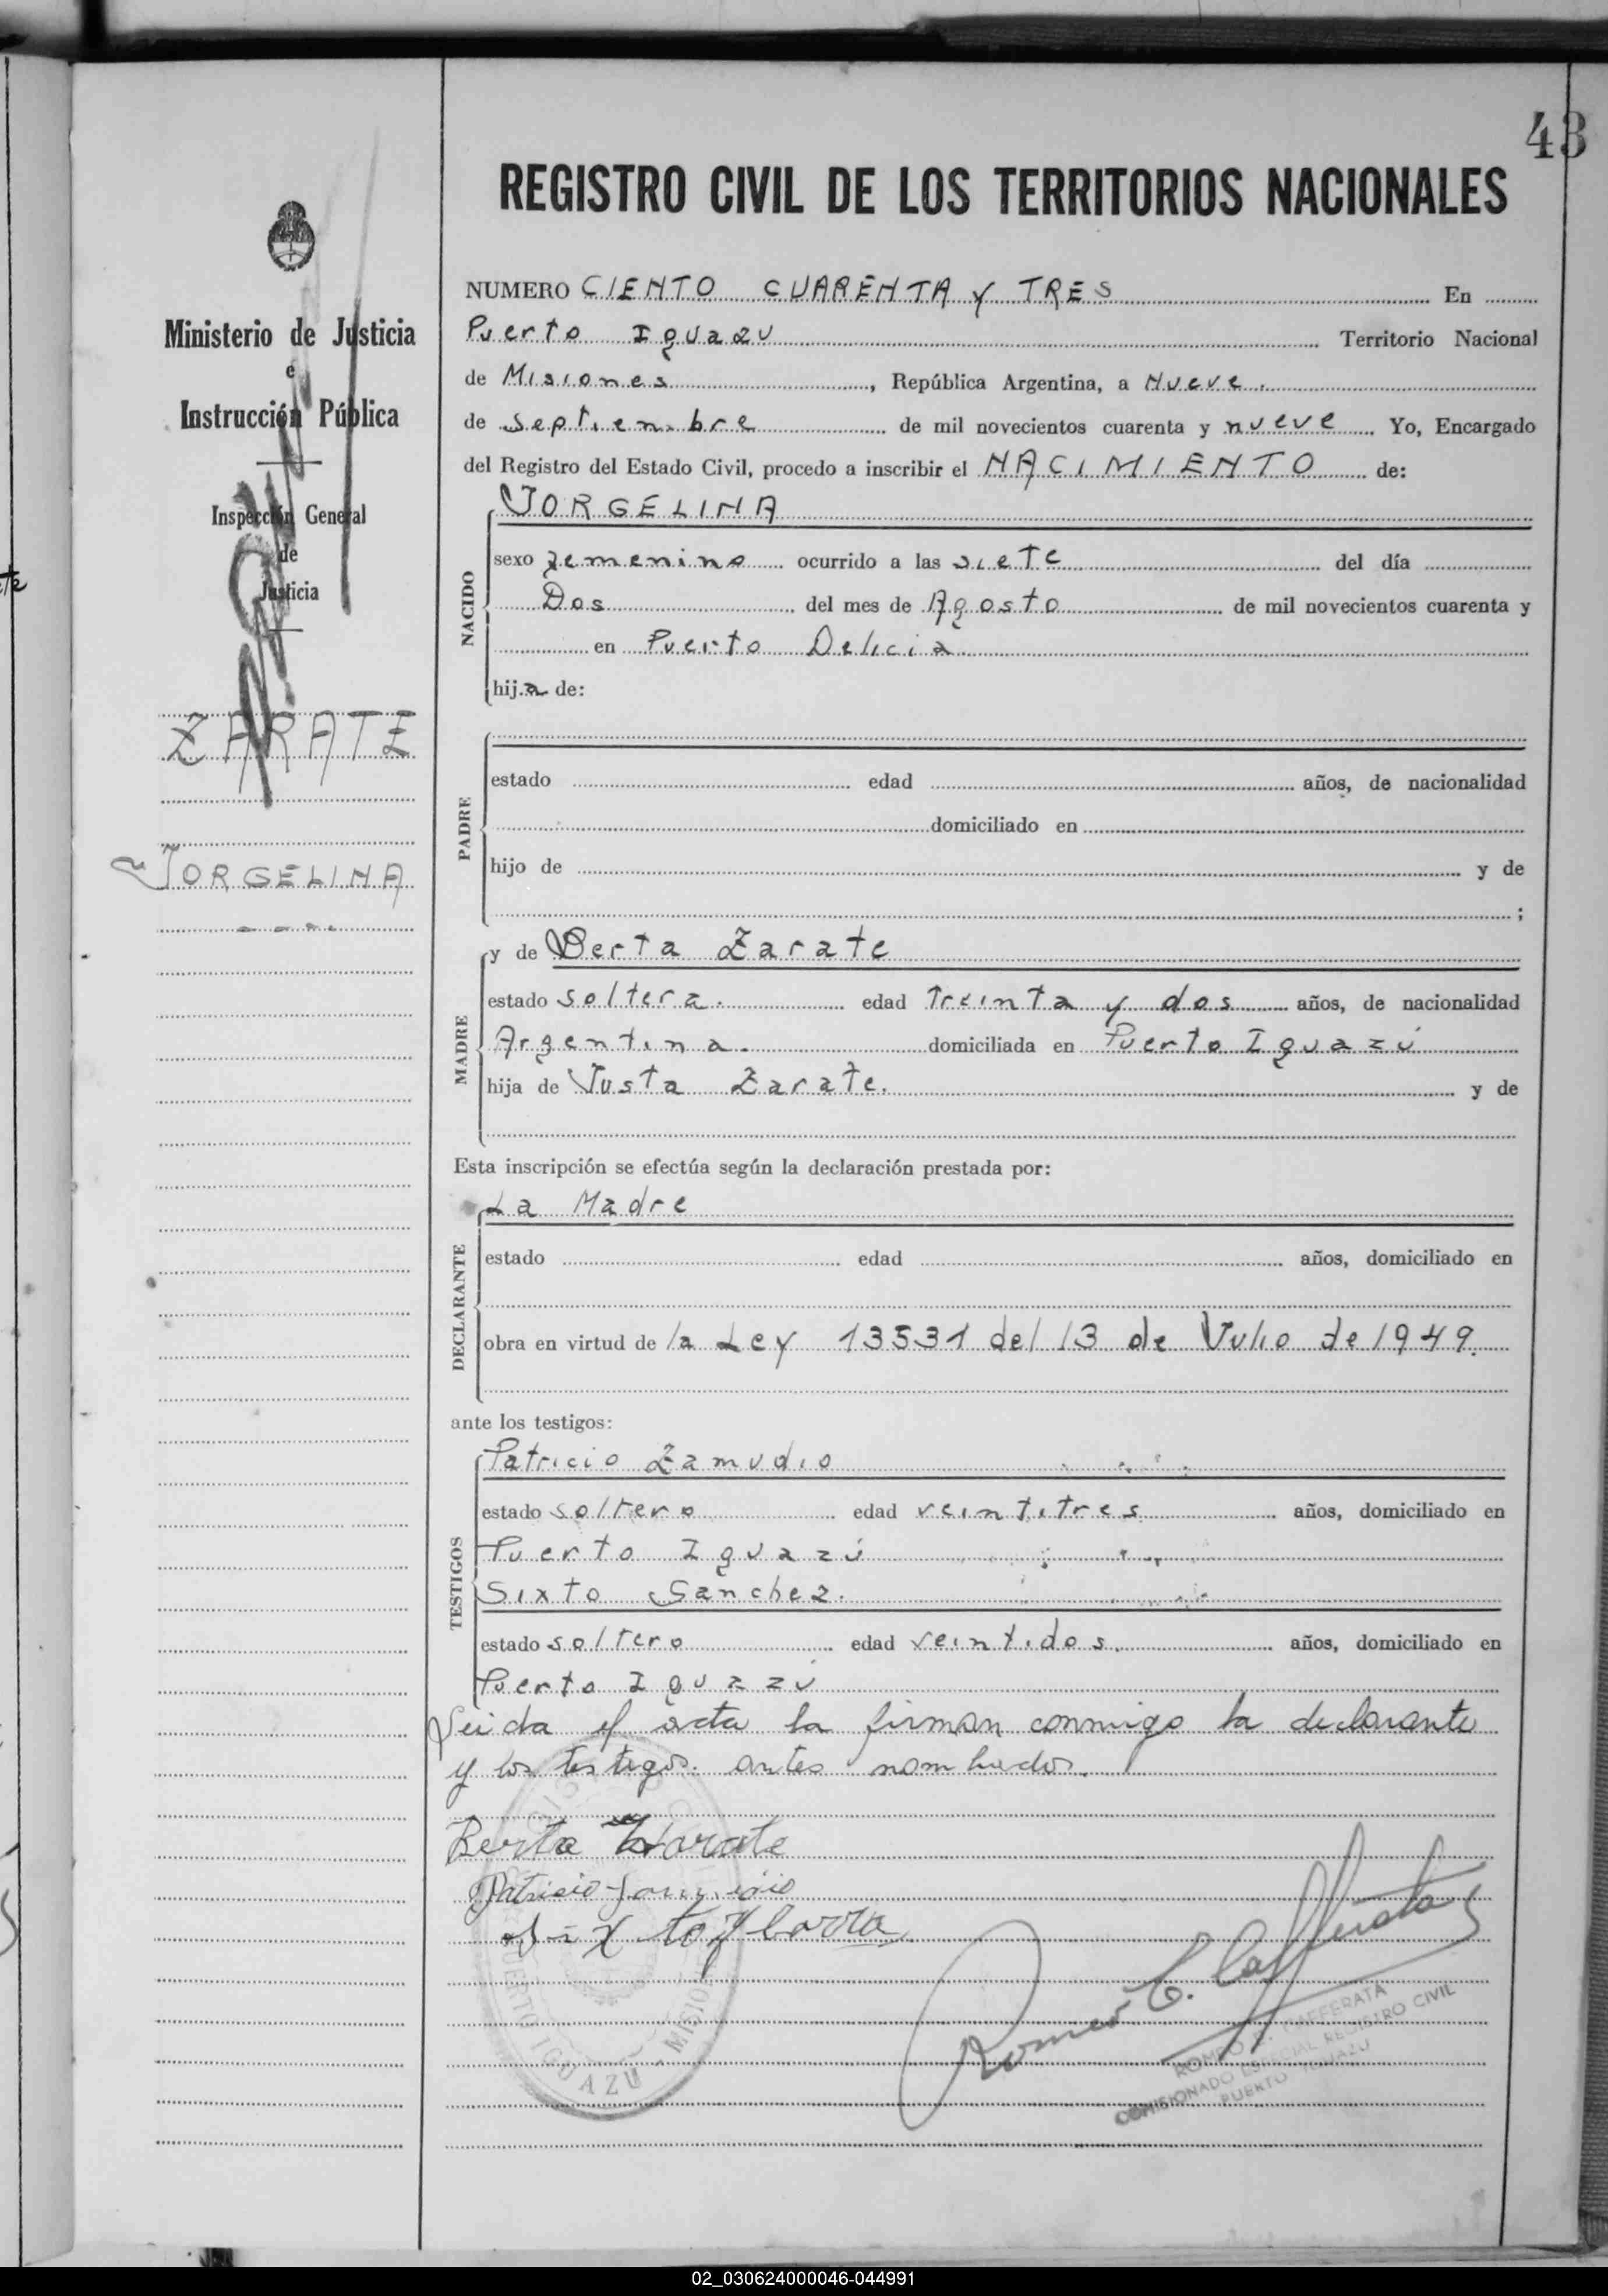 43
REGISTRO CIVIL DE LOS TERRITORIOS NACIONALES
Ministerio de Justicia
e
Instrucción Pública
Inspección General
de
Justicia
ZARATE
JORGELINA
NUMERO CIENTO CUARENTA Y TRES En
Puerto Iguazu Territorio Nacional
de Misiones, República Argentina, a Nueve.
de septiembre de mil novecientos cuarenta y nueve Yo, Encargado
del Registro del Estado Civil, procedo a inscribir el NACIMIENTO de:
NACIDO
JORGELINA
sexo femenino ocurrido a las siete del día
Dos del mes de Agosto de mil novecientos cuarenta y
en Puerto Delicia.
hija de:
PADRE
estado edad años, de nacionalidad
domiciliado en
hijo de y de
;
MADRE
y de Berta Zarate
estado soltera. edad Treinta y dos años, de nacionalidad
Argentina. domiciliada en Puerto Iguazú
hija de Justa Zarate. y de
Esta inscripción se efectúa según la declaración prestada por:
DECLARANTE
La Madre
estado edad años, domiciliado en
obra en virtud de la Ley 13531 del 13 de Julio de 1949.
ante los testigos:
TESTIGOS
Patricio Zamudio
estado soltero edad veintitres años, domiciliado en
Puerto Iguazú
Sixto Sanchez.
estado soltero edad veintidos. años, domiciliado en
Puerto Iguazú
Leida el acta la firman conmigo la declarante
y los testigos antes nombrados.
Berta Zarate
Patricio
Sixto Ybarra
Romeo C. Cafferata
ROMEO C. CAFFERATA
COMISIONADO ESPECIAL REGISTRO CIVIL
PUERTO IGUAZU
PUERTO IGUAZU - MISIONES
02_030624000046-044991